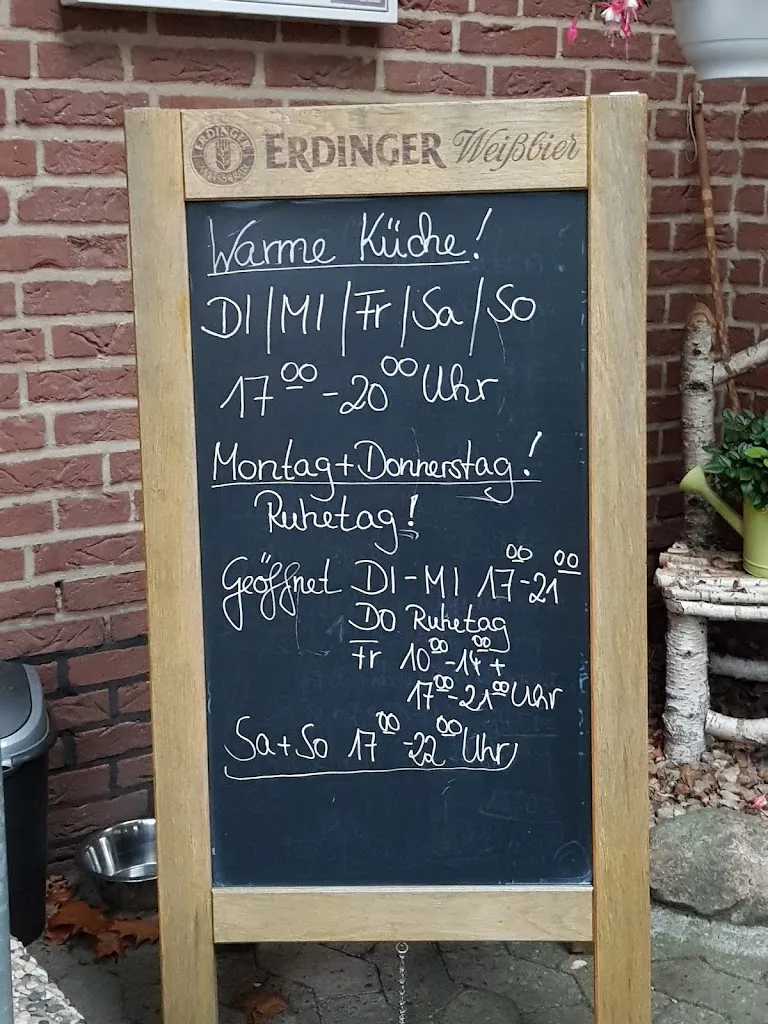 ERDINGER Weißbier
Warme Küche!
DI | MI | Fr | Sa | So
17⁰⁰ - 20⁰⁰ Uhr
Montag + Donnerstag!
Ruhetag!
Geöffnet DI - MI 17⁰⁰ - 21⁰⁰
DO Ruhetag
Fr 10⁰⁰ - 14⁰⁰ +
17⁰⁰ - 21⁰⁰ Uhr
Sa + So 17⁰⁰ - 22⁰⁰ Uhr